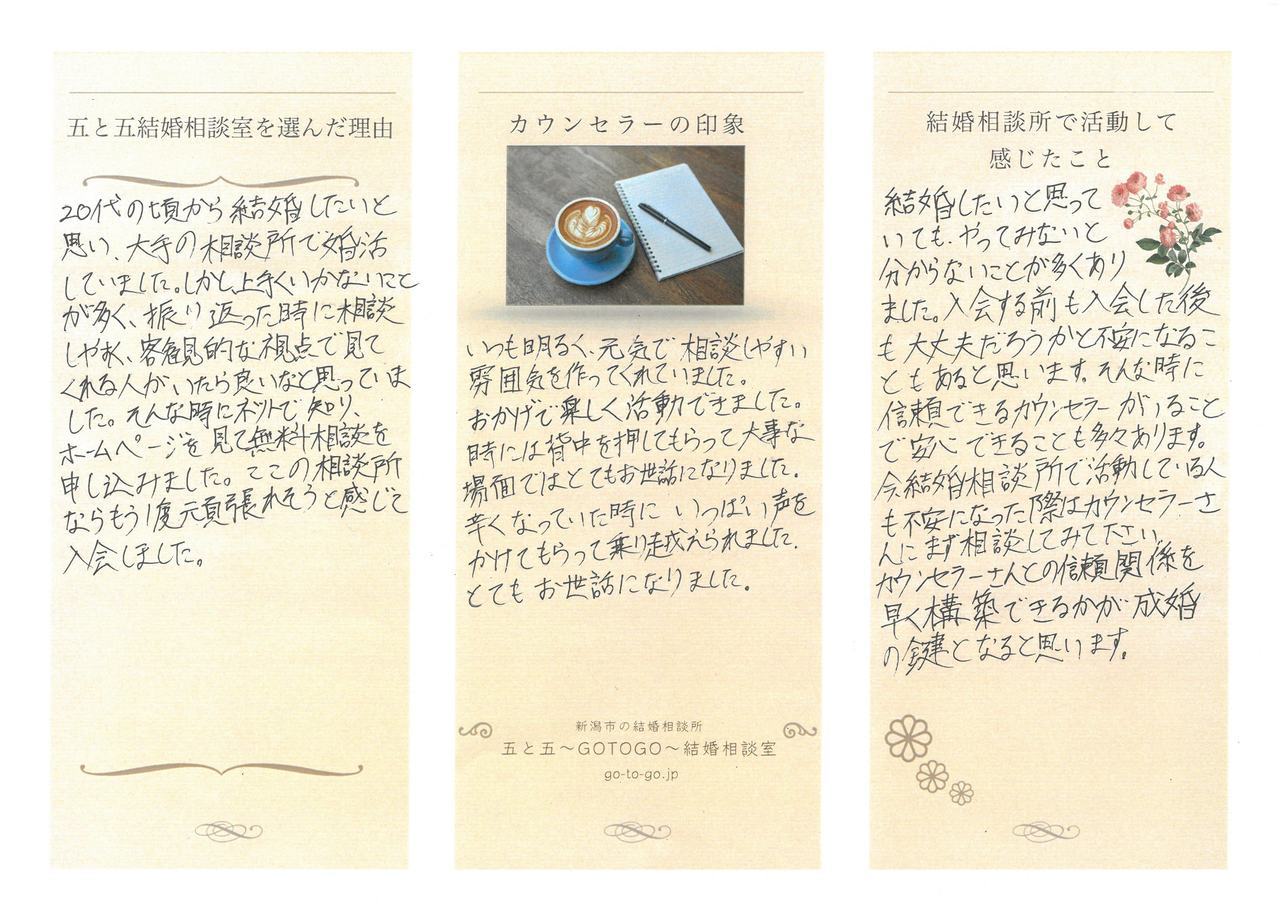 五と五結婚相談室を選んだ理由
20代の頃から結婚したいと
思い、大手の相談所で婚活
していました。しかし上手くいかないこと
が多く、振り返った時に相談
しやすく、客観的な視点で見て
くれる人がいたら良いなと思っていま
した。そんな時にネットで知り、
ホームページを見て無料相談を
申し込みました。ここの相談所
ならもう1度頑張れそうと感じて
入会しました。
カウンセラーの印象
いつも明るく、元気で相談しやすい
雰囲気を作ってくれていました。
おかげで楽しく活動できました。
時には背中を押してもらって大事な
場面ではとてもお世話になりました。
辛くなっていた時にいっぱい声を
かけてもらって乗り越えられました。
とてもお世話になりました。
新潟市の結婚相談所
五と五～GOTOGO～結婚相談室
go-to-go.jp
結婚相談所で活動して
感じたこと
結婚したいと思って
いても、やってみないと
分からないことが多くあり
ました。入会する前も入会した後
も大丈夫だろうかと不安になるこ
ともあると思います。そんな時に
信頼できるカウンセラーがいること
で安心できることも多々あります。
今結婚相談所で活動している人
も不安になった際はカウンセラーさ
んにまず相談してみて下さい。
カウンセラーさんとの信頼関係を
早く構築できるかが成婚
の鍵となると思います。